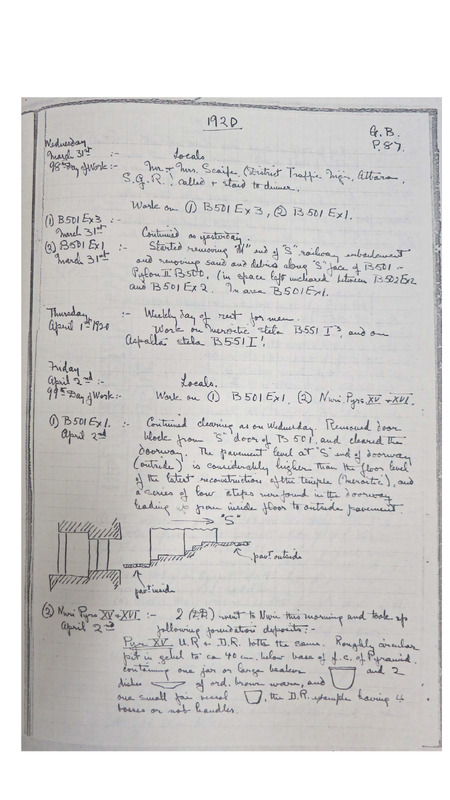 1920
G.B.
P.87.
Wednesday
March 31st :- Locals
98th Day of Work :- Mr. & Mrs. Scaife, (District Traffic Mgr., Atbara,
S.G.R.) called & staid to dinner.
Work on (1) B501 Ex 3, (2) B501 Ex 1.
(1) B501 Ex 3 :-
March 31st Continued as yesterday.
(2) B501 Ex 1 :- Started removing "N" end of "S" railway embankment
March 31st and removing sand and debris along "S" face of B501 -
Pylon II B500, (in space left uncleared between B502 Ex 2
and B501 Ex 2. In area B501 Ex 1.
Thursday :- Weekly day of rest for men.
April 1st 1920 Work on Meroitic stela B551 I³, and on
Aspalta stela B551 I¹.
Friday
April 2nd :- Locals.
99th Day of Work :- Work on (1) B501 Ex 1. (2) Nuri Pyrs XV & XVI.
(1) B501 Ex 1. :- Continued clearing as on Wednesday. Removed door
April 2nd block from "S" door of B501, and cleared the
doorway. The pavement level at "S" end of doorway
(outside) is considerably higher than the floor level
of the latest reconstruction of the temple (Meroitic), and
a series of low steps were found in the doorway
leading up from inside floor to outside pavement.
"S"
pavt. outside
pavt. inside
(2) Nuri Pyrs XV & XVI :- 2 went to Nuri this morning and took up
April 2nd following foundation deposits :-
Pyr. XV. U.R. & D.R. both the same. Roughly circular
pit in gebel to ca 40 cm. below base of f.c. of Pyramid.
containing one jar or large beaker and 2
dishes of ord. brown ware, and
one small fai. vessel, the D.R. example having 4
bosses or nob handles.